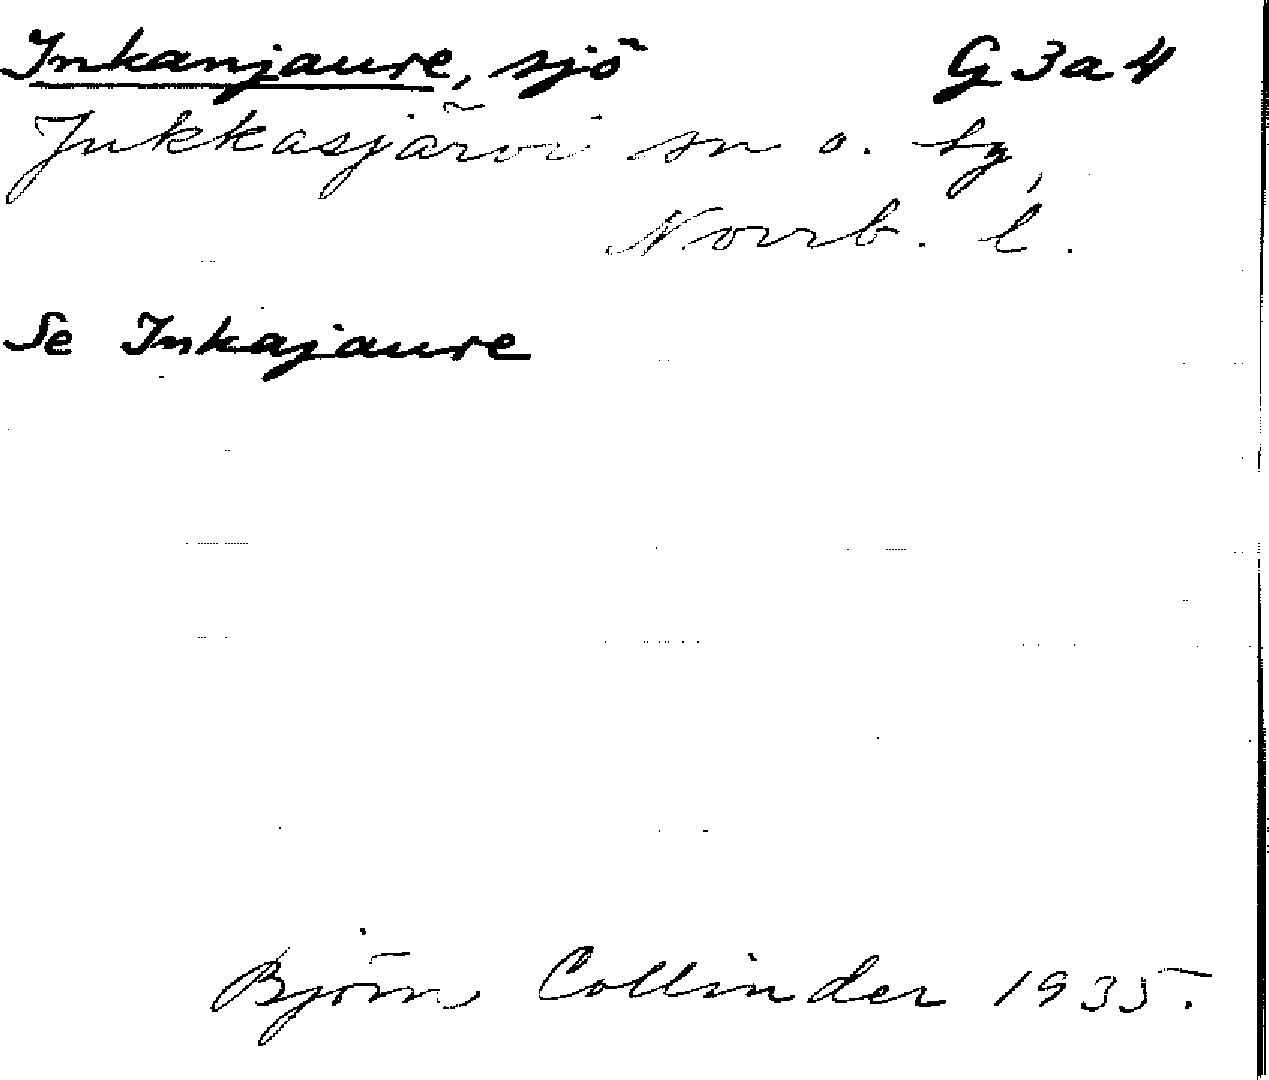 Inkanjaure, sjö G3a4
Jukkasjärvi sn o. tg,
Norrb. l.
Se Inkajaure
Björn Collinder 1935.